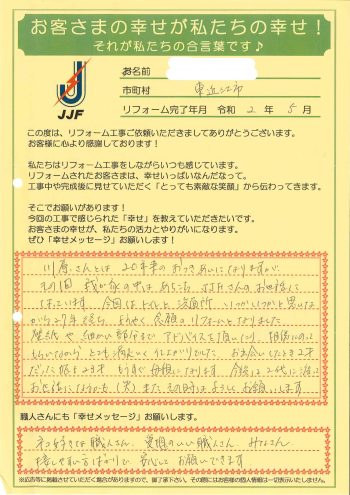 お客さまの幸せが私たちの幸せ！
それが私たちの合言葉です♪
JJF
お名前
市町村 東近江市
リフォーム完了年月 令和 2 年 5 月
この度は、リフォーム工事ご依頼いただきましてありがとうございます。
お客様に心より感謝しております！
私たちはリフォーム工事をしながらいつも感じています。
リフォームされたお客さまは、幸せいっぱいなんだなって。
工事中や完成後に見せていただく「とっても素敵な笑顔」から伝わってきます。
そこでお願いがあります！
今回の工事で感じられた「幸せ」を教えていただきたいです。
お客さまの幸せが、私たちの活力とやりがいになります。
ぜひ「幸せメッセージ」お願いします！
川原さんとは 20年来のおつきあいになりますが
その間 我が家の中は あちこち JJFさんのお世話に
なっています。今回はトイレと洗面所 いつかいつかと思いな
がら27年
念願のリフォームとなりました
壁紙や細かい部分まで アドバイスを頂いたり、相談にのって
もらいながら とても満足いく仕上がりでした。お会いしたとき2才
だった娘も22才 もうすぐ母親になります 今後は2代に渡って
お世話になるかも（笑）また、その時はよろしくお願いします
職人さんにも「幸せメッセージ」お願いします。
ネコ好きな職人さん、愛想のいい職人さん みなさん
接しやすい方ばかりで 安心して お願いできます